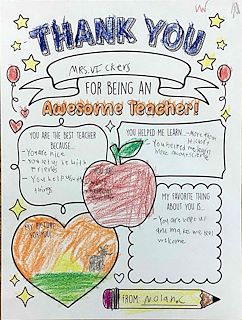 THANK YOU
MRS. Vickers
FOR BEING AN
Awesome Teacher!
YOU ARE THE BEST TEACHER
BECAUSE...
- You are nice
- You let us sit with
friends
- You help with
things
YOU HELPED ME LEARN...
- More then
history
- You helped me learn
more
MY PICTURE
FOR YOU
MY FAVORITE THING
ABOUT YOU IS...
- You are
and make me feel
welcome
FROM: Nolan.C